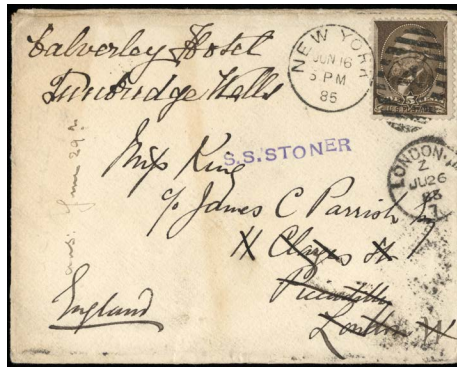 Calverley Hotel
Tunbridge Wells
NEW YORK
JUN 16
5 PM
85
S.S.STONER
Miss King
c/o James C Parrish
Clarges St
Piccadilly
London W
England
LONDON
Z
JU26
85
ans: June 29